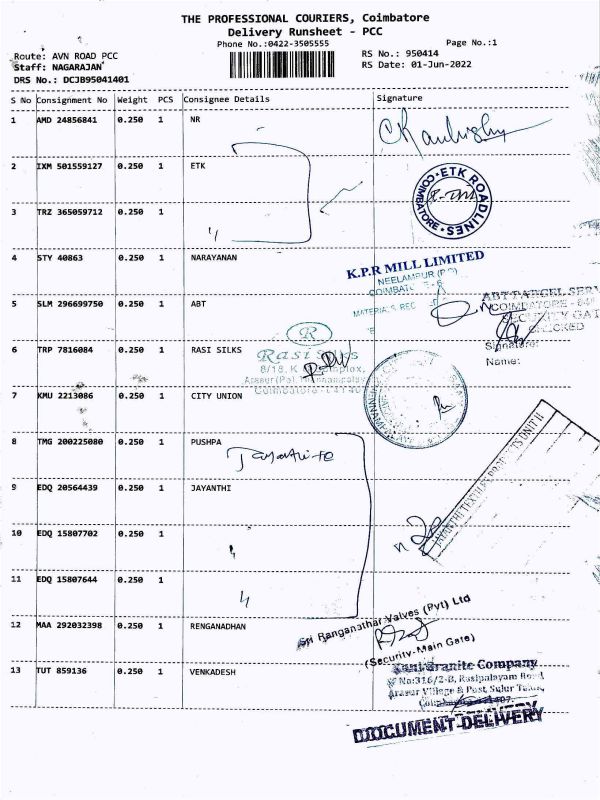 THE PROFESSIONAL COURIERS, Coimbatore
Delivery Runsheet - PCC
Phone No.:0422-3505555
Page No.:1
Route: AVN ROAD PCC
RS No.: 950414
Staff: NAGARAJAN
RS Date: 01-Jun-2022
DRS No.: DCJB95041401
S No Consignment No Weight PCS Consignee Details Signature
1 AMD 24856841 0.250 1 NR
2 IXM 501559127 0.250 1 ETK
ETK ROADLINES
COIMBATORE
3 TRZ 365059712 0.250 1
4 STY 40863 0.250 1 NARAYANAN
K.P.R MILL LIMITED
NEELAMPUR (PO)
5 SLM 296699750 0.250 1 ABT
ABT PARCEL SERV
COIMBATORE - 641
SECURITY GAT
CHECKED
Signature:
Name:
6 TRP 7816084 0.250 1 RASI SILKS
Rasi Silks
7 KMU 2213086 0.250 1 CITY UNION
8 TMG 200225080 0.250 1 PUSHPA
9 EDQ 20564439 0.250 1 JAYANTHI
JAYANTHI TEXTILE PRODUCTS UNIT II
10 EDQ 15807702 0.250 1
11 EDQ 15807644 0.250 1
12 MAA 292032398 0.250 1 RENGANADHAN
Sri Ranganathar Valves (Pvt) Ltd
(Security-Main Gate)
13 TUT 859136 0.250 1 VENKADESH
Granite Company
No:316/2-B, Rasipalayam Road
Arasur Village & Post Sulur Taluk,
DOCUMENT DELIVERY